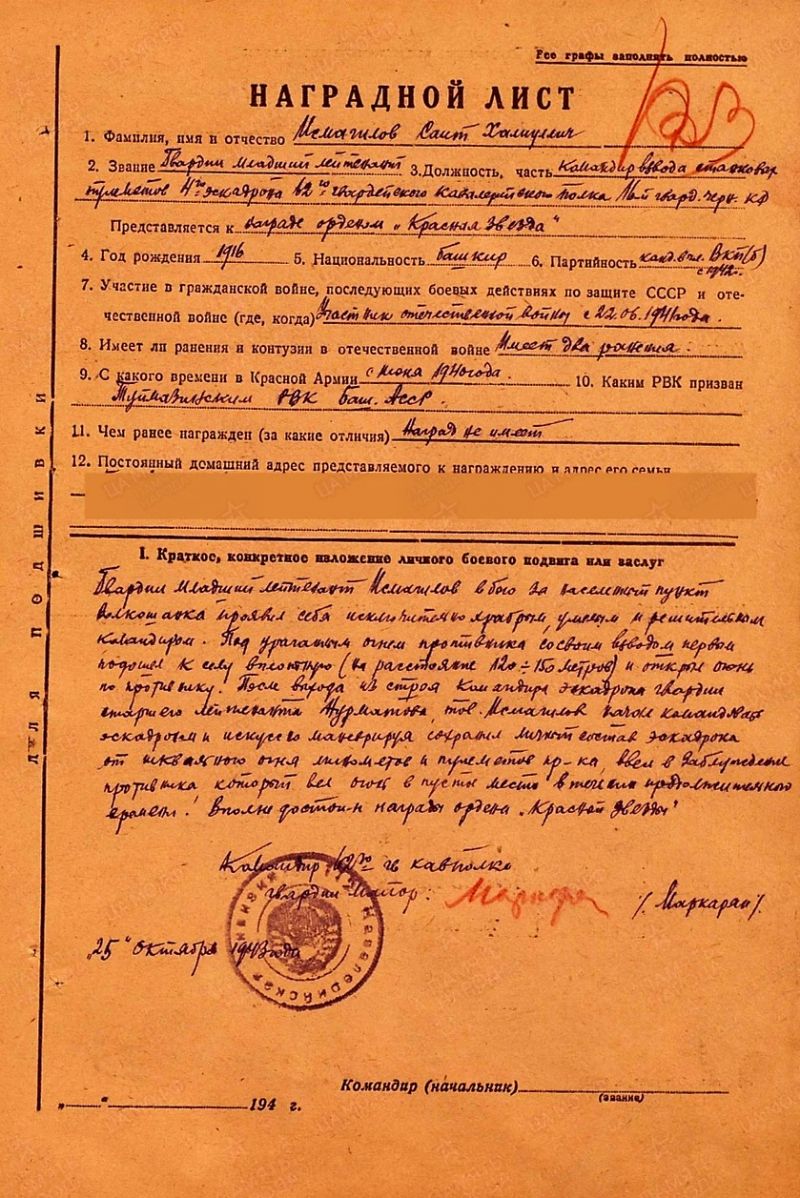 Все графы заполнять полностью
НАГРАДНОЙ ЛИСТ
1. Фамилия, имя и отчество Исмагилов Саит
2. Звание Гвардии младший лейтенант 3. Должность, часть командир взвода станковых
пулеметов 4го эскадрона 62го гвардейского кавалерийского полка гвард. КД
Представляется к награде орденом „Красная звезда"
4. Год рождения 1916 5. Национальность башкир 6. Партийность канд. чл. ВКП(б)
с 1942г.
7. Участие в гражданской войне, последующих боевых действиях по защите СССР и оте-
чественной войне (где, когда) Участник отечественной войны с 22.06.1941года.
8. Имеет ли ранения и контузии в отечественной войне Имеет два ранения.
9. С какого времени в Красной Армии с 1940года. 10. Каким РВК призван
Туймазинским РВК Баш. АССР.
11. Чем ранее награжден (за какие отличия) Наград не имеет
12. Постоянный домашний адрес представляемого к награждению и адрес его семьи
ДЛЯ ПОДШИВКИ
I. Краткое, конкретное изложение личного боевого подвига или заслуг
Гвардии младший лейтенант Исмагилов в бою за населенный пункт
проявил себя исключительно храбрым, умелым и решительным
командиром. Под ураганным огнем противника, со своим взводом первым
подошел к селу вплотную (на расстояние 120÷150 метров) и открыл огонь
по противнику. После выхода из строя командира эскадрона гвардии
старшего лейтенанта Нурматова, тов. Исмагилов начал командовать
эскадроном и искусно маневрируя, сохранил личный состав эскадрона
от шквального огня минометов и пулеметов пр-ка, ввел в заблуждение
противника который вел огонь в пустое место в течении продолжительного
времени. Вполне достоин награды ордена „Красной Звезды"
Командир 62го гв кавполка
гвардии майор: /Маркаран/.
„25" октября 1943 года
Командир (начальник)
(звание)
„ " 194 г.